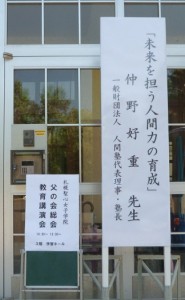 「未来を担う人間力の育成」
仲野好重先生
一般財団法人 人間塾代表理事・塾長
札幌聖心女子学院
父の会総会
教育講演会